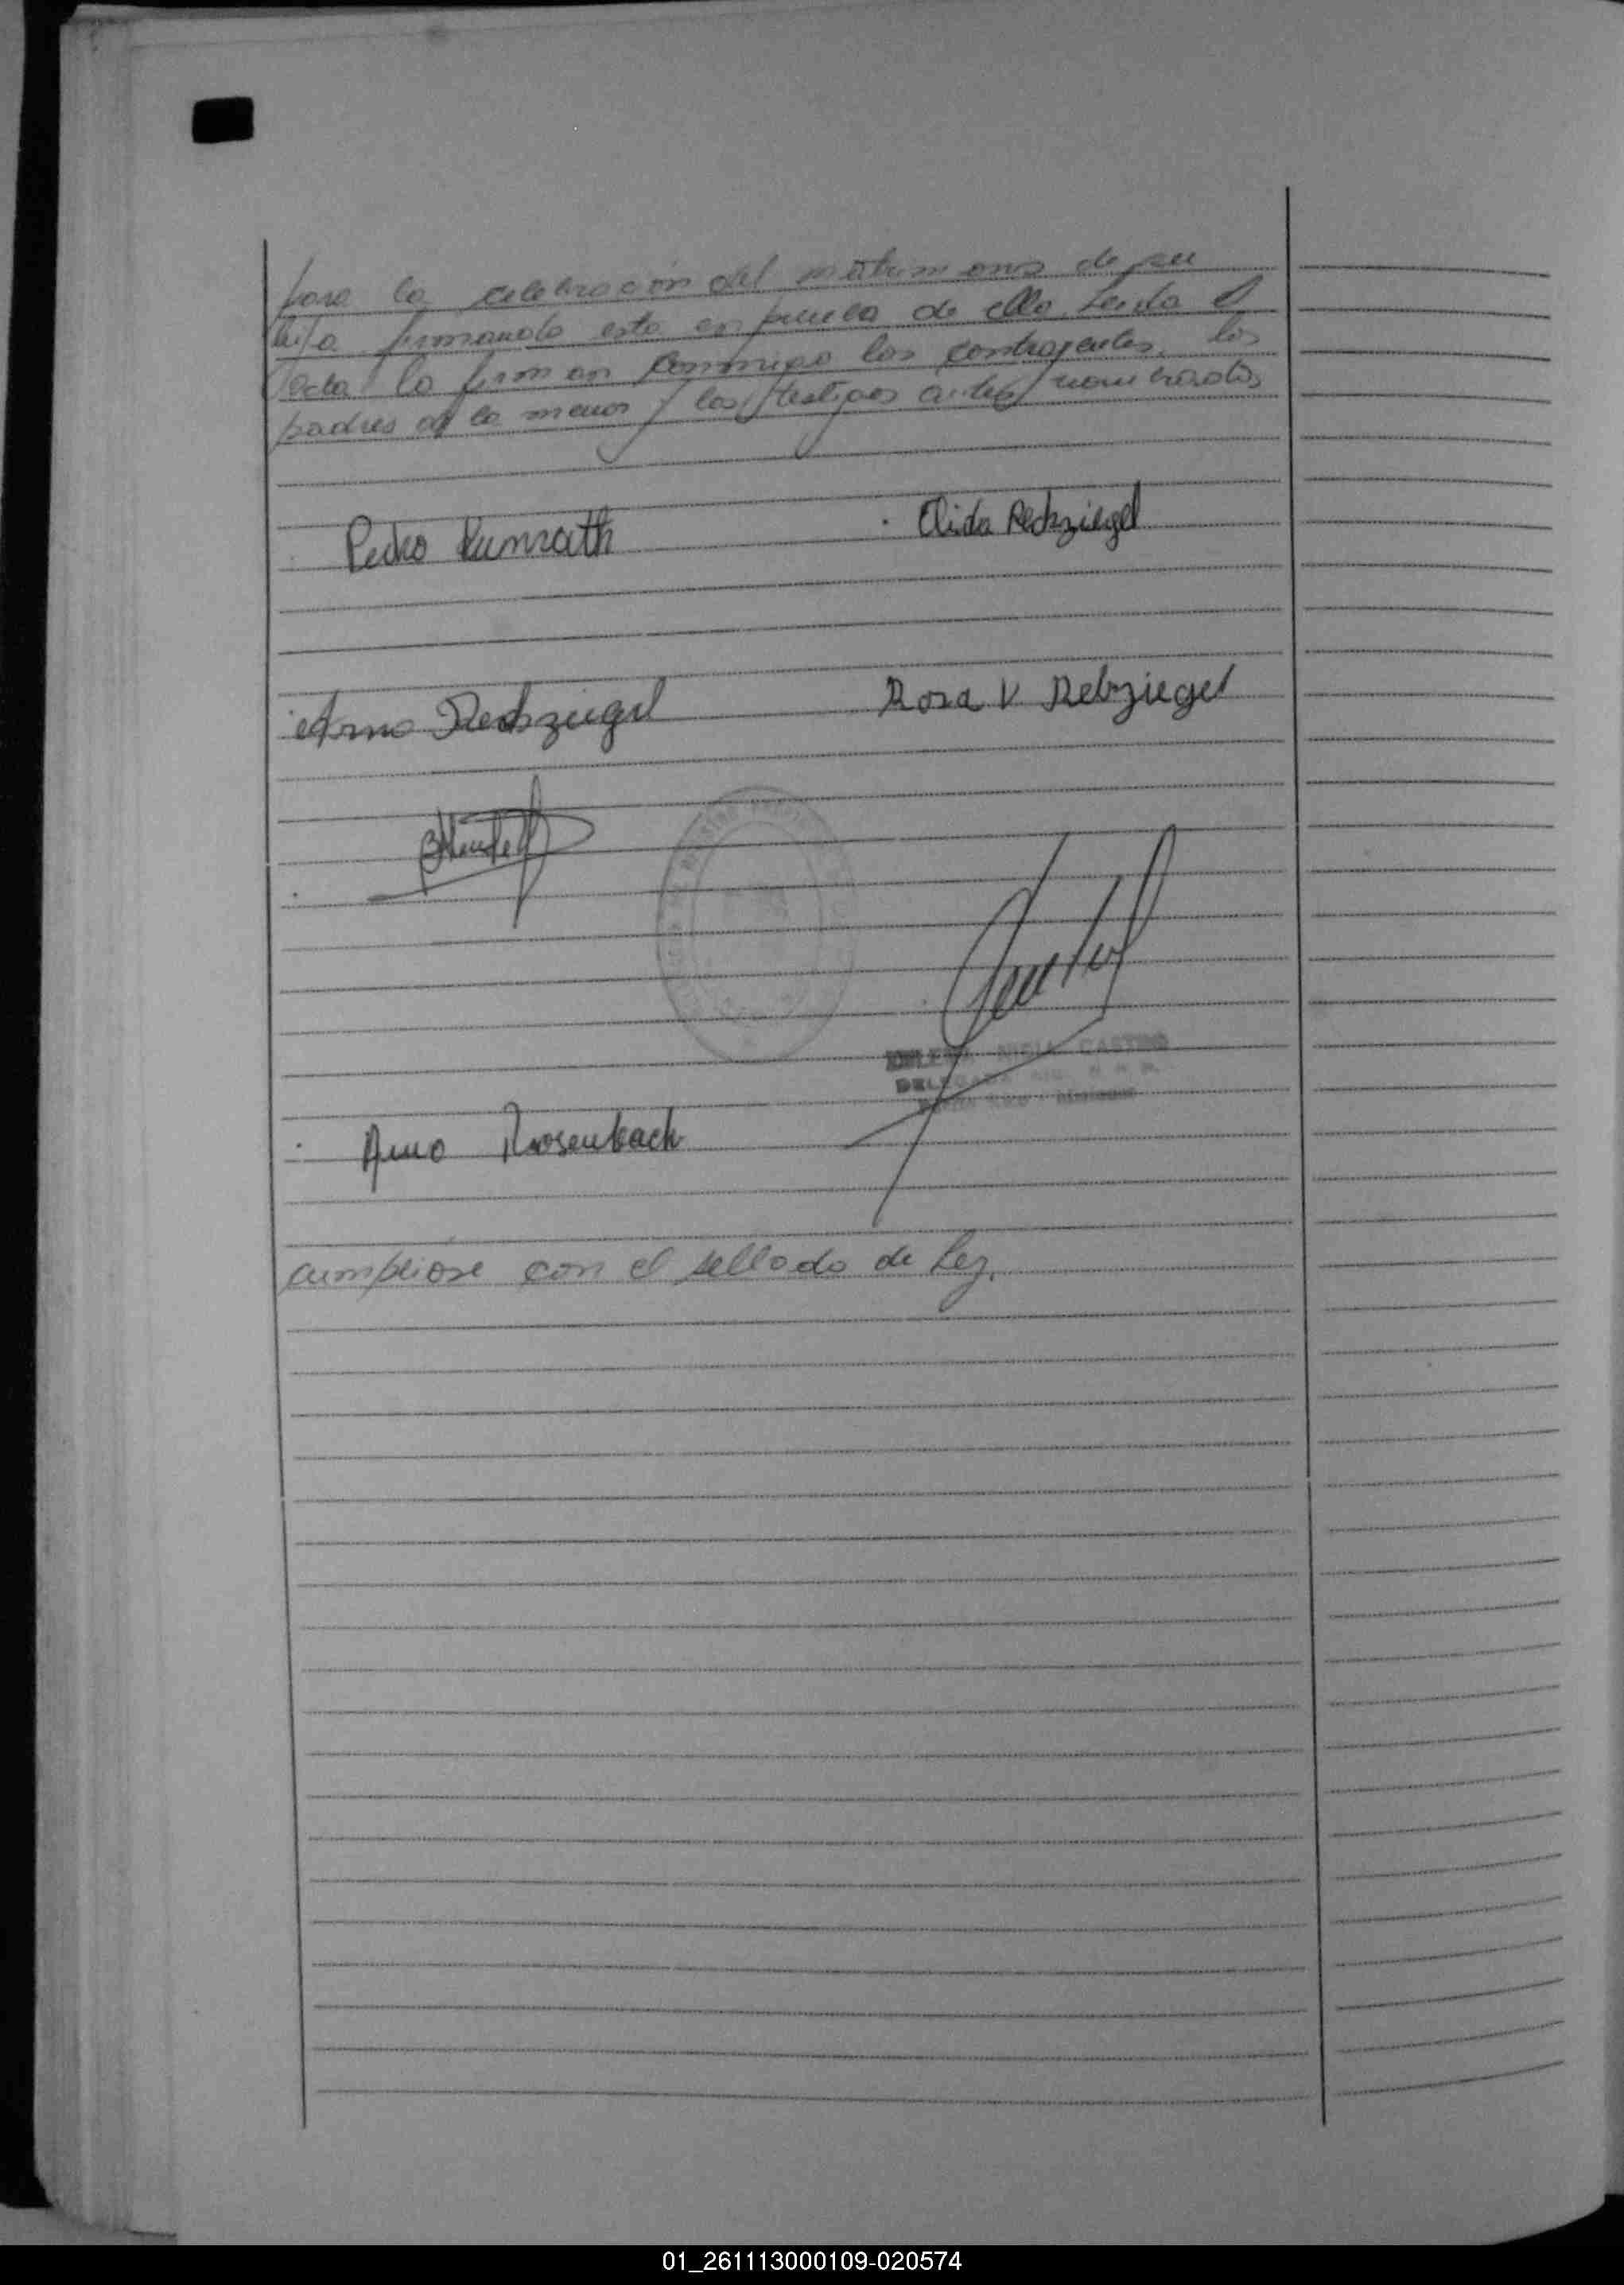 para la celebración del matrimonio de su
hija firmando esta en prueba de ello. Leida el
acta la firman conmigo los contrayentes, los
padres de la menor y los testigos antes nombrados
Pedro Kunrath
Elida Reckziegel
Arno Reckziegel
Rosa V Rekziegel
NIDIA CASTRO
DELEGADA
Arno Rosenbach
cumpliose con el sellado de Ley.
01_261113000109-020574